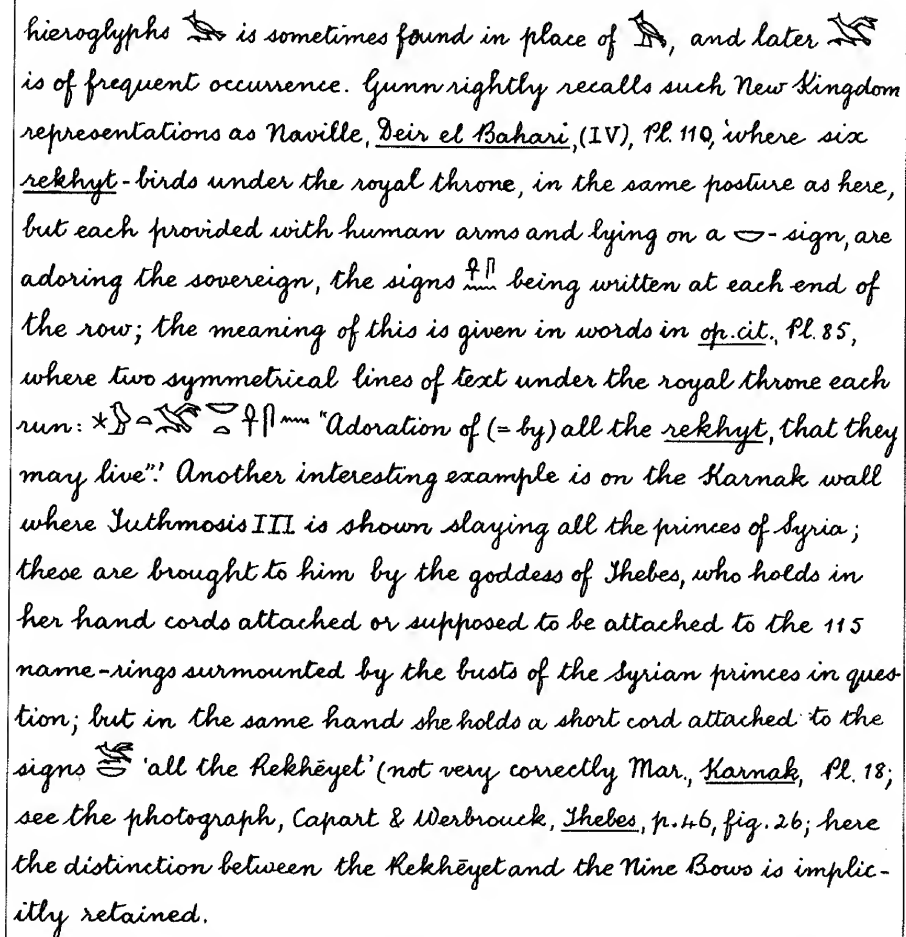 hieroglyphs 𓅜 is sometimes found in place of 𓅛, and later 𓅛
is of frequent occurrence. Gunn rightly recalls such New Kingdom
representations as Naville, Deir el Bahari, (IV), Pl. 110, where six
rekhyt-birds under the royal throne, in the same posture as here,
but each provided with human arms and lying on a 𓎟-sign, are
adoring the sovereign, the signs 𓋹𓋴𓈖 being written at each end of
the row; the meaning of this is given in words in op. cit., Pl. 85,
where two symmetrical lines of text under the royal throne each
run: 𓇼𓅱𓏏𓅛𓎟𓋹𓋴𓈖 "Adoration of (= by) all the rekhyt, that they
may live". Another interesting example is on the Karnak wall
where Tuthmosis III is shown slaying all the princes of Syria;
these are brought to him by the goddess of Thebes, who holds in
her hand cords attached or supposed to be attached to the 115
name-rings surmounted by the busts of the Syrian princes in ques-
tion; but in the same hand she holds a short cord attached to the
signs 𓅛𓎟 'all the Rekhēyet' (not very correctly Mar., Karnak, Pl. 18;
see the photograph, Capart & Werbrouck, Thebes, p. 46, fig. 26; here
the distinction between the Rekhēyet and the Nine Bows is implic-
itly retained.